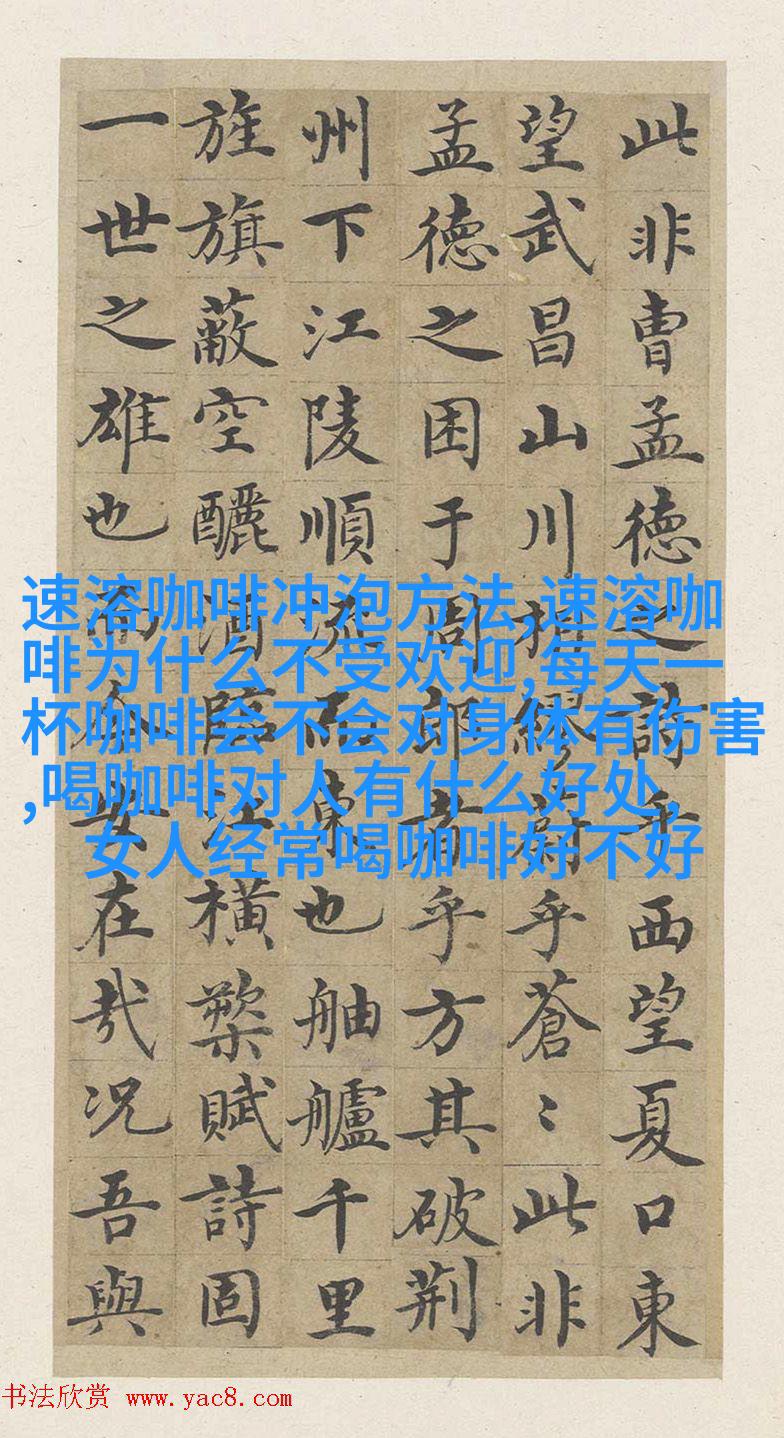 此非曹孟德之詩乎西望夏口東
望武昌山川相繆蔚乎蒼〻此非
孟德之困于周郎者乎方其破荆
州下江陵順流而東也舳艫千里
旌旗蔽空釃酒臨江横槊賦詩固
一世之雄也而今安在哉况吾與
速溶咖啡冲泡方法,速溶咖
啡为什么不受欢迎,每天一
杯咖啡会不会对身体有伤害
,喝咖啡对人有什么好处,
女人经常喝咖啡好不好
书法欣赏 www.yac8.com